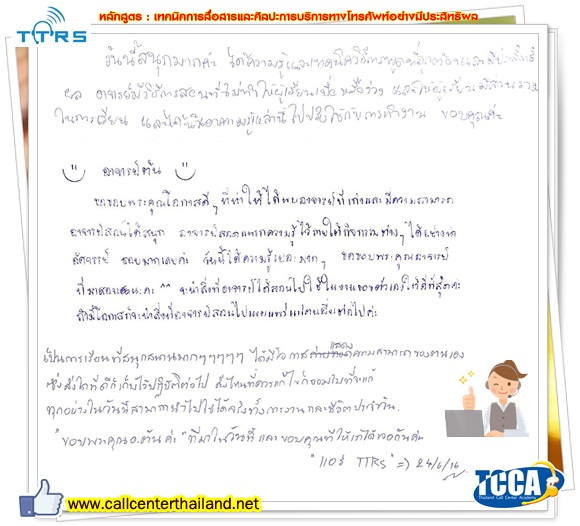 หลักสูตร : เทคนิคการสื่อสารและศิลปะการบริการทางโทรศัพท์อย่างมีประสิทธิผล
TTRS
วันนี้สนุกมากค่ะ ได้ความรู้และเทคนิควิธีการพูดที่ถูกต้องและมีประสิทธิ
ผล อาจารย์มีวิธีการสอนที่ไม่ทำให้ผู้เรียนเบื่อหรือง่วง และให้ผู้เรียนมีส่วนร่วม
ในการเรียน และได้นำเอาความรู้เหล่านี้ไปปรับใช้กับการทำงาน ขอบคุณค่ะ
อาจารย์ต้น
ขอขอบพระคุณโอกาสดีๆ ที่ทำให้ได้พบอาจารย์ที่เก่งและมีความสามารถ
อาจารย์สอนได้สนุก อาจารย์สอดแทรกความรู้ไว้ภายใต้กิจกรรมต่างๆ ได้อย่างน่า
อัศจรรย์ ชอบมากเลยค่ะ วันนี้ได้ความรู้เยอะมากๆ ขอขอบพระคุณอาจารย์
ที่มาสอนนะคะ ^^ จะนำสิ่งที่อาจารย์ได้สอนไปใช้ในงานของตัวเองให้ดีที่สุดค่ะ
ถ้ามีโอกาสก็จะนำสิ่งที่อาจารย์สอนไปเผยแพร่แก่คนอื่นต่อไปค่ะ
เป็นการเรียนที่สนุกสนานมากๆๆๆๆๆ ได้มีโอกาสแสดงความสามารถของตนเอง
สิ่งใดที่ดีก็เก็บไว้ปฏิบัติต่อไป สิ่งไหนที่ควรแก้ไขก็ยอมรับที่จะแก้
ทุกอย่างในวันนี้สามารถนำไปใช้ได้จริงทั้งการงานและชีวิตประจำวัน.
"ขอบพระคุณอ.ต้นค่ะ" ที่มาในวันนี้ และขอบคุณที่ให้เราได้เจอกันค่ะ
TTRS" =) 24/6/
TCCA
Thailand Call Center Academy
www.callcenterthailand.net